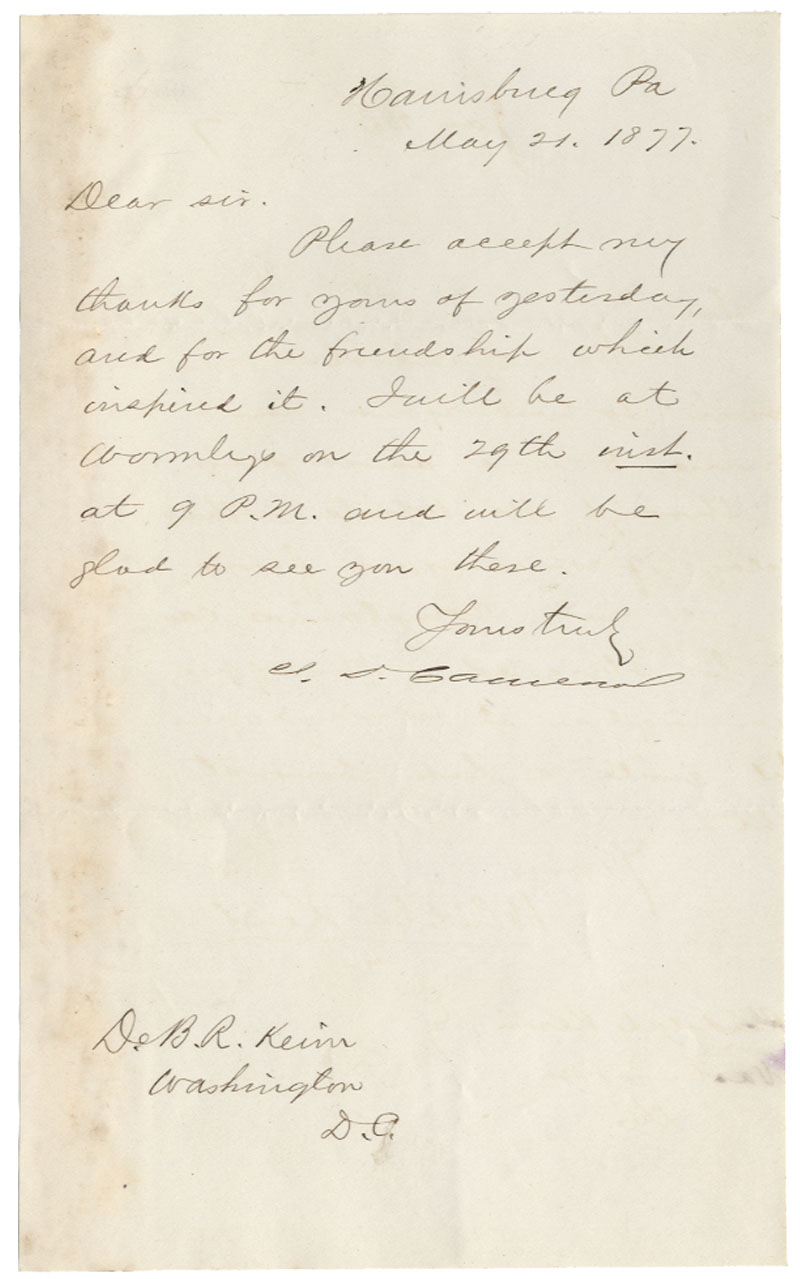 Harrisburg Pa
May 21. 1877.
Dear sir.
Please accept my
thanks for yours of yesterday,
and for the friendship which
inspired it. I will be at
Wormleys on the 29th inst.
at 9 P.M. and will be
glad to see you there.
Yours truly
J. D. Cameron
De B. R. Keim
Washington
D.C.